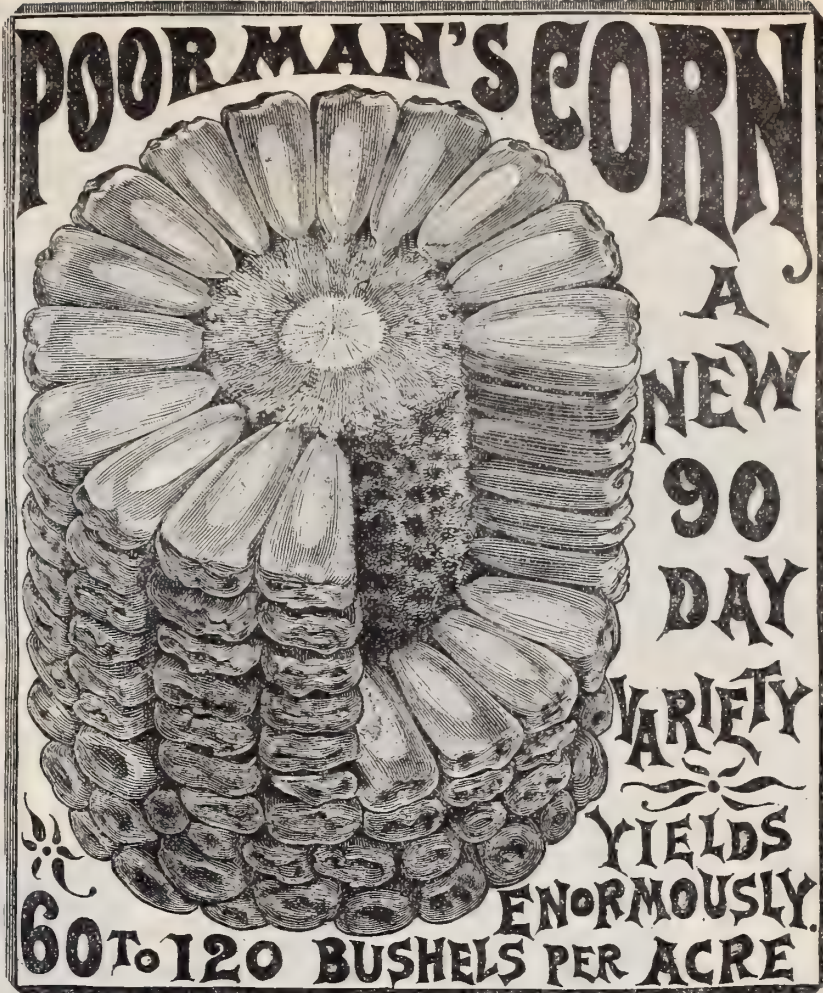 POOR MAN'S CORN
A
NEW
90
DAY
VARIETY
YIELDS
ENORMOUSLY.
60 To 120 BUSHELS PER ACRE